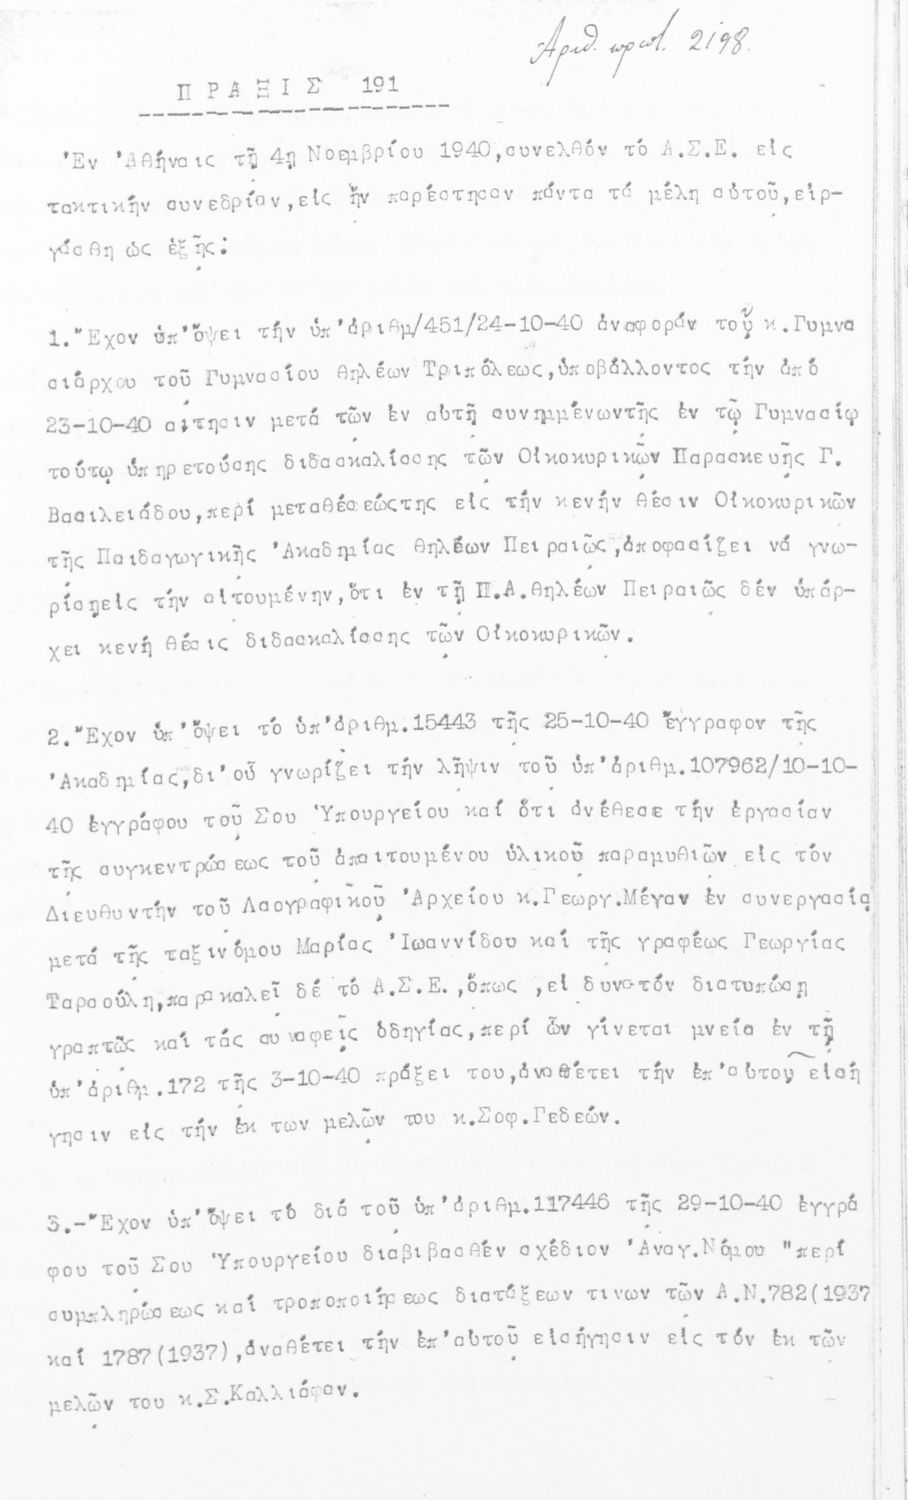 Αριθ. πρωτ. 2198.
ΠΡΑΞΙΣ 191
Ἐν Ἀθήναις τῇ 4ῃ Νοεμβρίου 1940,συνελθόν τό Α.Σ.Ε. εἰς
τακτικήν συνεδρίαν,εἰς ἥν παρέστησαν πάντα τά μέλη αὐτοῦ,εἰρ-
γάσθη ὡς ἑξῆς:
1.Ἔχον ὑπ'ὄψει τήν ὑπ'ἀριθμ/451/24-10-40 ἀναφοράν τοῦ κ.Γυμνα
σιάρχου τοῦ Γυμνασίου θηλέων Τριπόλεως,ὑποβάλλοντος τήν ἀπό
23-10-40 αἴτησιν μετά τῶν ἐν αὐτῇ συνημμένωντῆς ἐν τῷ Γυμνασίῳ
τούτῳ ὑπηρετούσης διδασκαλίσσης τῶν Οἰκοκυρικῶν Παρασκευῆς Γ.
Βασιλειάδου,περί μεταθέσεώςτης εἰς τήν κενήν θέσιν Οἰκοκυρικῶν
τῆς Παιδαγωγικῆς Ἀκαδημίας θηλέων Πειραιῶς,ἀποφασίζει νά γνω-
ρίσῃεἰς τήν αἰτουμένην,ὅτι ἐν τῇ Π.Α.θηλέων Πειραιῶς δέν ὑπάρ-
χει κενή θέσις διδασκαλίσσης τῶν Οἰκοκυρικῶν.
2.Ἔχον ὑπ'ὄψει τό ὑπ'ἀριθμ.15443 τῆς 25-10-40 ἔγγραφον τῆς
Ἀκαδημίας,δι'οὗ γνωρίζει τήν λῆψιν τοῦ ὑπ'ἀριθμ.107962/10-10-
40 ἐγγράφου τοῦ Σου Ὑπουργείου καί ὅτι ἀνέθεσε τήν ἐργασίαν
τῆς συγκεντρώσεως τοῦ ἀπαιτουμένου ὑλικοῦ παραμυθιῶν εἰς τόν
Διευθυντήν τοῦ Λαογραφικοῦ Ἀρχείου κ.Γεωργ.Μέγαν ἐν συνεργασίᾳ
μετά τῆς ταξινόμου Μαρίας Ἰωαννίδου καί τῆς γραφέως Γεωργίας
Ταρσούλη,παρακαλεῖ δέ τό Α.Σ.Ε.,ὅπως ,εἰ δυνατόν διατυπώσῃ
γραπτῶς καί τάς συναφεῖς ὁδηγίας,περί ὧν γίνεται μνεία ἐν τῇ
ὑπ'ἀριθμ.172 τῆς 3-10-40 πράξει του,ἀναθέτει τήν ἐπ'αὐτοῦ εἰσή
γησιν εἰς τήν ἐκ των μελῶν του κ.Σοφ.Γεδεών.
3.-Ἔχον ὑπ'ὄψει τό διά τοῦ ὑπ'ἀριθμ.117446 τῆς 29-10-40 ἐγγρά
φου τοῦ Σου Ὑπουργείου διαβιβασθέν σχέδιον Ἀναγ.Νόμου "περί
συμπληρώσεως καί τροποποιήσεως διατάξεων τινων τῶν Α.Ν.782(1937
καί 1787(1937),ἀναθέτει τήν ἐπ'αὐτοῦ εἰσήγησιν εἰς τόν ἐκ τῶν
μελῶν του κ.Σ.Καλλιάφαν.